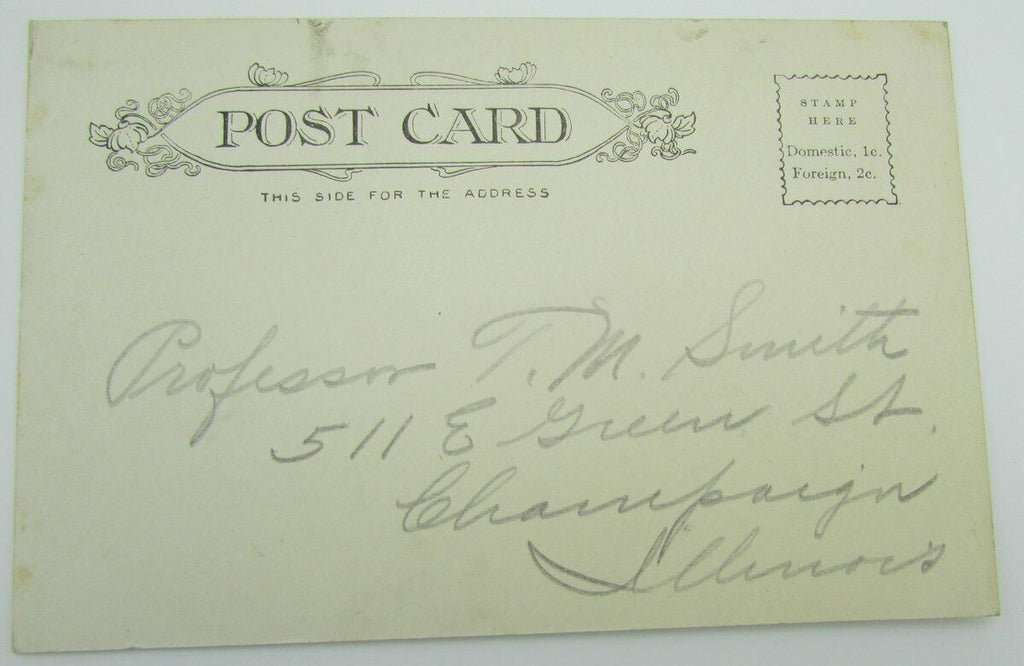 POST CARD
THIS SIDE FOR THE ADDRESS
STAMP
HERE
Domestic, 1c.
Foreign, 2c.
Professor T. M. Smith
511 E Green St.
Champaign
Illinois